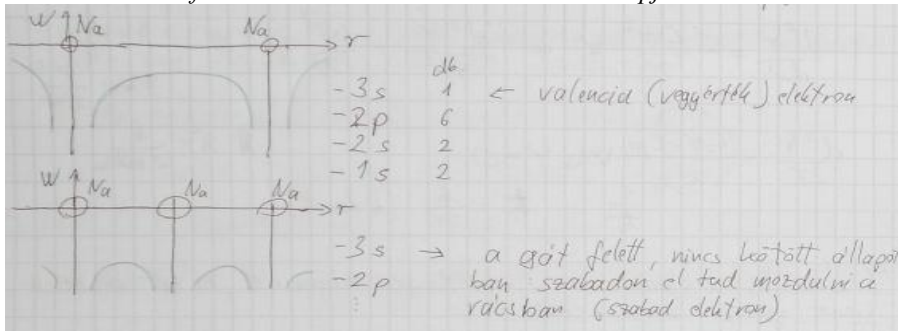 W Na Na r
db
-3s 1 ← valencia (vegyérték) elektron
-2p 6
-2s 2
-1s 2
W Na Na Na r
-3s → a gát felett, nincs kötött állapot
-2p ban szabadon el tud mozdulni a
⋮ rácsban (szabad elektron)